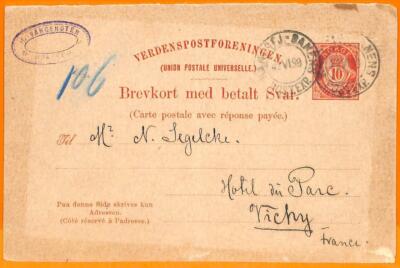 VERDENSPOSTFORENINGEN.
(UNION POSTALE UNIVERSELLE.)
Brevkort med betalt Svar.
(Carte postale avec réponse payée.)
106
10
Til Mr. N. Segelcke.
Hotel du Parc.
Vichy
France.
Paa denne Side skrives kun
Adressen.
(Côté réservé à l'adresse.)